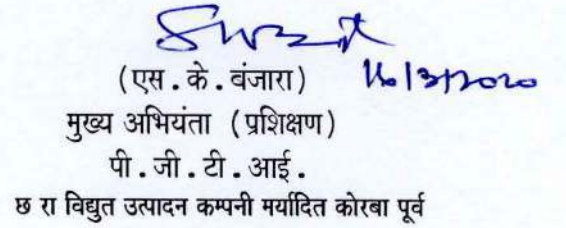 (एस.के.वंजारा) 16/3/2020
मुख्य अभियंता (प्रशिक्षण)
पी.जी.टी.आई.
छ रा विद्युत उत्पादन कम्पनी मर्यादित कोरबा पूर्व